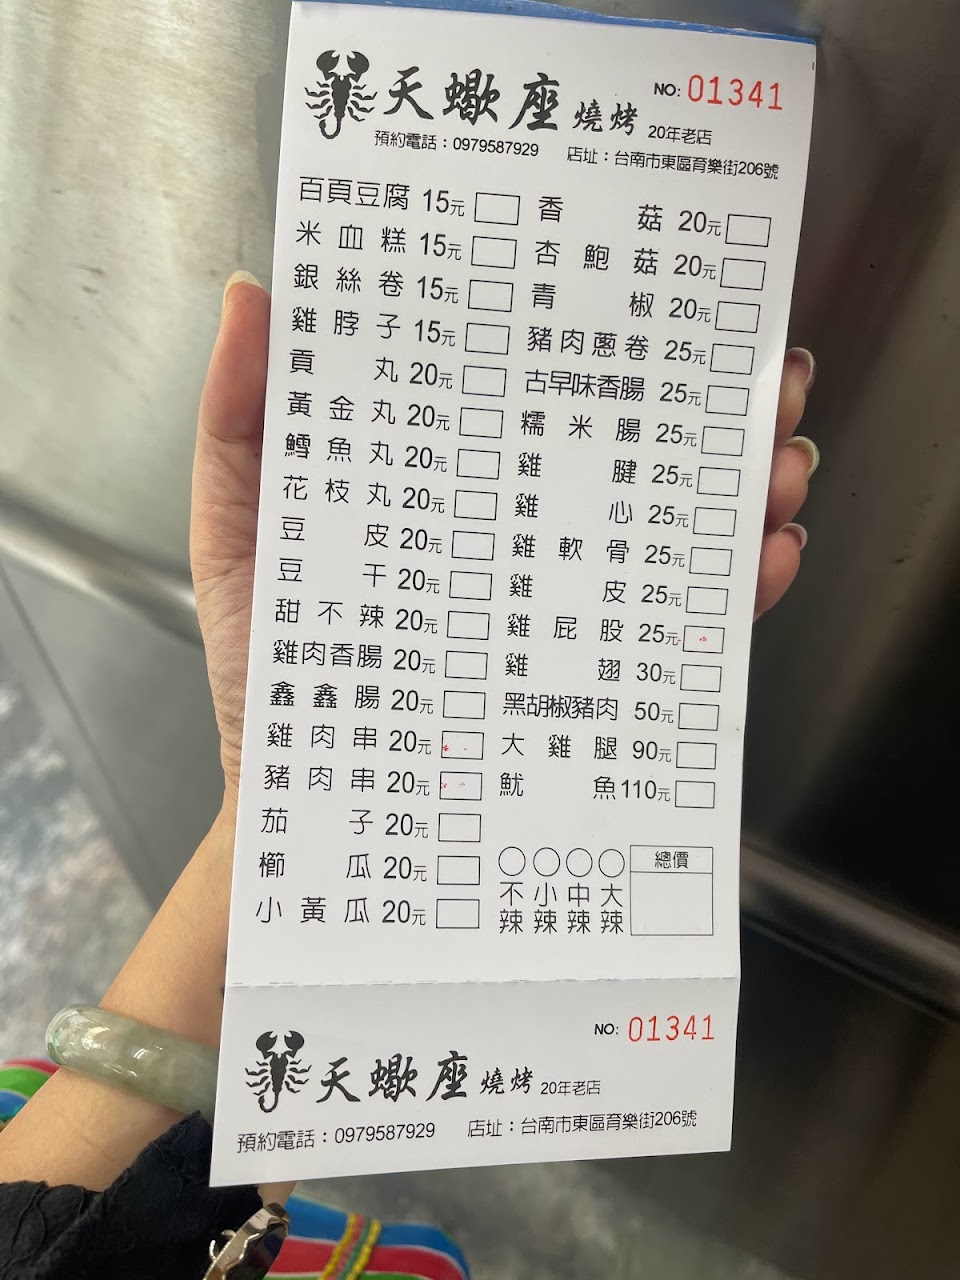 天蠍座 燒烤 20年老店 NO: 01341
預約電話：0979587929 店址：台南市東區育樂街206號
百頁豆腐 15元
米血糕 15元
銀絲卷 15元
雞脖子 15元
貢丸 20元
黃金丸 20元
鱈魚丸 20元
花枝丸 20元
豆皮 20元
豆干 20元
甜不辣 20元
雞肉香腸 20元
鑫鑫腸 20元
雞肉串 20元
豬肉串 20元
茄子 20元
櫛瓜 20元
小黃瓜 20元
香菇 20元
杏鮑菇 20元
青椒 20元
豬肉蔥卷 25元
古早味香腸 25元
糯米腸 25元
雞腱 25元
雞心 25元
雞軟骨 25元
雞皮 25元
雞屁股 25元
雞翅 30元
黑胡椒豬肉 50元
大雞腿 90元
魷魚 110元
不辣 小辣 中辣 大辣
總價
NO: 01341
天蠍座 燒烤 20年老店
預約電話：0979587929 店址：台南市東區育樂街206號